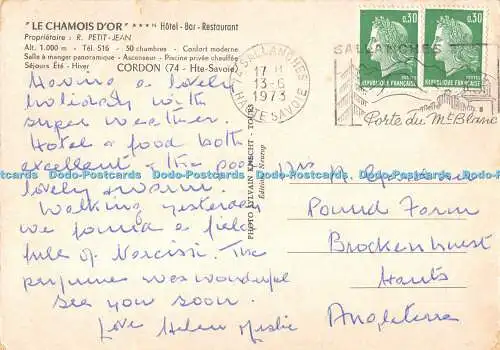 "LE CHAMOIS D'OR" **** Hôtel - Bar - Restaurant
Propriétaire : R. PETIT-JEAN
Alt. 1.000 m - Tél. 516 - 50 chambres - Confort moderne
Salle à manger panoramique - Ascenseur - Piscine privée chauffée
Séjours Été - Hiver
CORDON (74 - Hte-Savoie)
Having a lovely
holiday with
super weather.
Hotel & food both
excellent & the pool
lovely & warm.
Walking yesterday
we found a field
full of Narcissi. The
perfume was wonderful
See you soon.
Love Helen
PHOTO SYLVAIN KNECHT - TOURS
Editions Neurop
74 SALLANCHES
17 H
13-6
1973
HAUTE SAVOIE
0,30
REPUBLIQUE FRANÇAISE
0,30
REPUBLIQUE FRANÇAISE
SALLANCHES
Porte du Mt Blanc
Mrs A.
Pound Farm
Brockenhurst
Hants
Angleterre
Dodo-Postcards Dodo-Postcards Dodo-Postcards Dodo-Postcards Dodo-Postcards